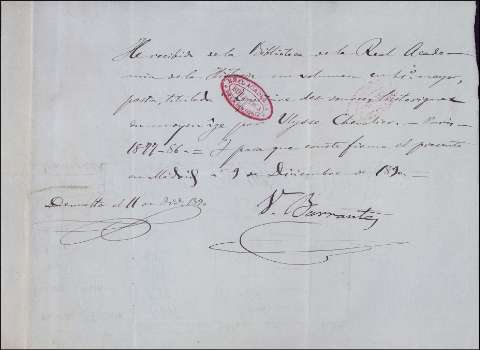 He recibido de la Biblioteca de la Real Acade-
mia de la Historia un volumen en 4º mayor,
pasta, titulado des sources historiques
du moyen âge par Ulysse Chevalier. — Paris —
1877-86. — Y para que conste firmo el presente
en Madrid á 9 de Diciembre de 1890.
Devuelto el 11 de Dic. 1890
V. Barrantes